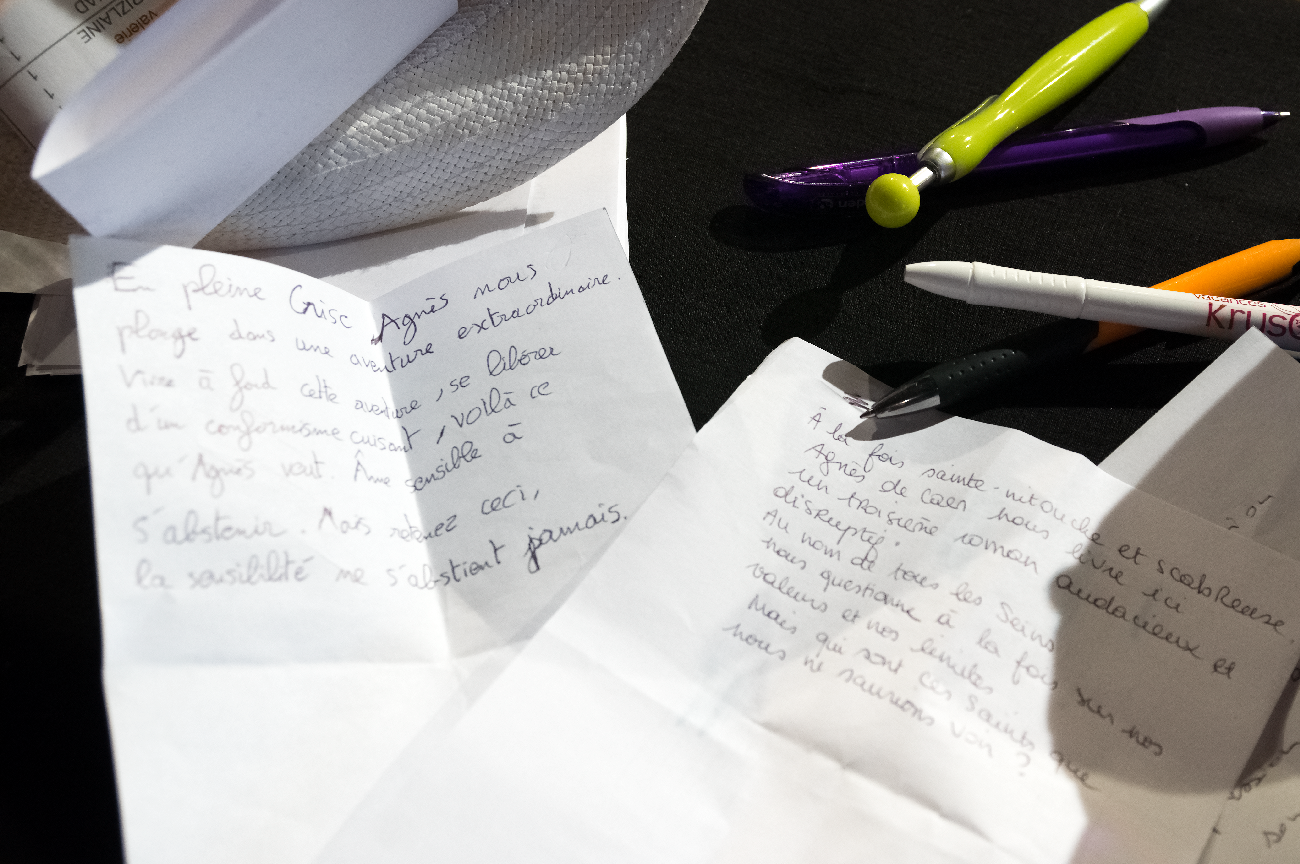 Valerie
RIZLAINE
AD
1
1
1
En pleine Crise Agnès nous
plonge dans une aventure extraordinaire.
Vivre à fond cette aventure, se libérer
d'un conformisme cuisant, voilà ce
qu'Agnès veut. Âme sensible à
s'abstenir. Mais retenez ceci,
la sensibilité ne s'abstient jamais.
vacances
Krus
À la fois sainte-nitouche et scabreuse,
Agnès de Caen nous livre ici
un troisième roman audacieux et
disruptif.
Au nom de tous les Seins
nous questionne à la fois sur nos
valeurs et nos limites
Mais qui sont ces Saints que
nous ne saurions voir ?